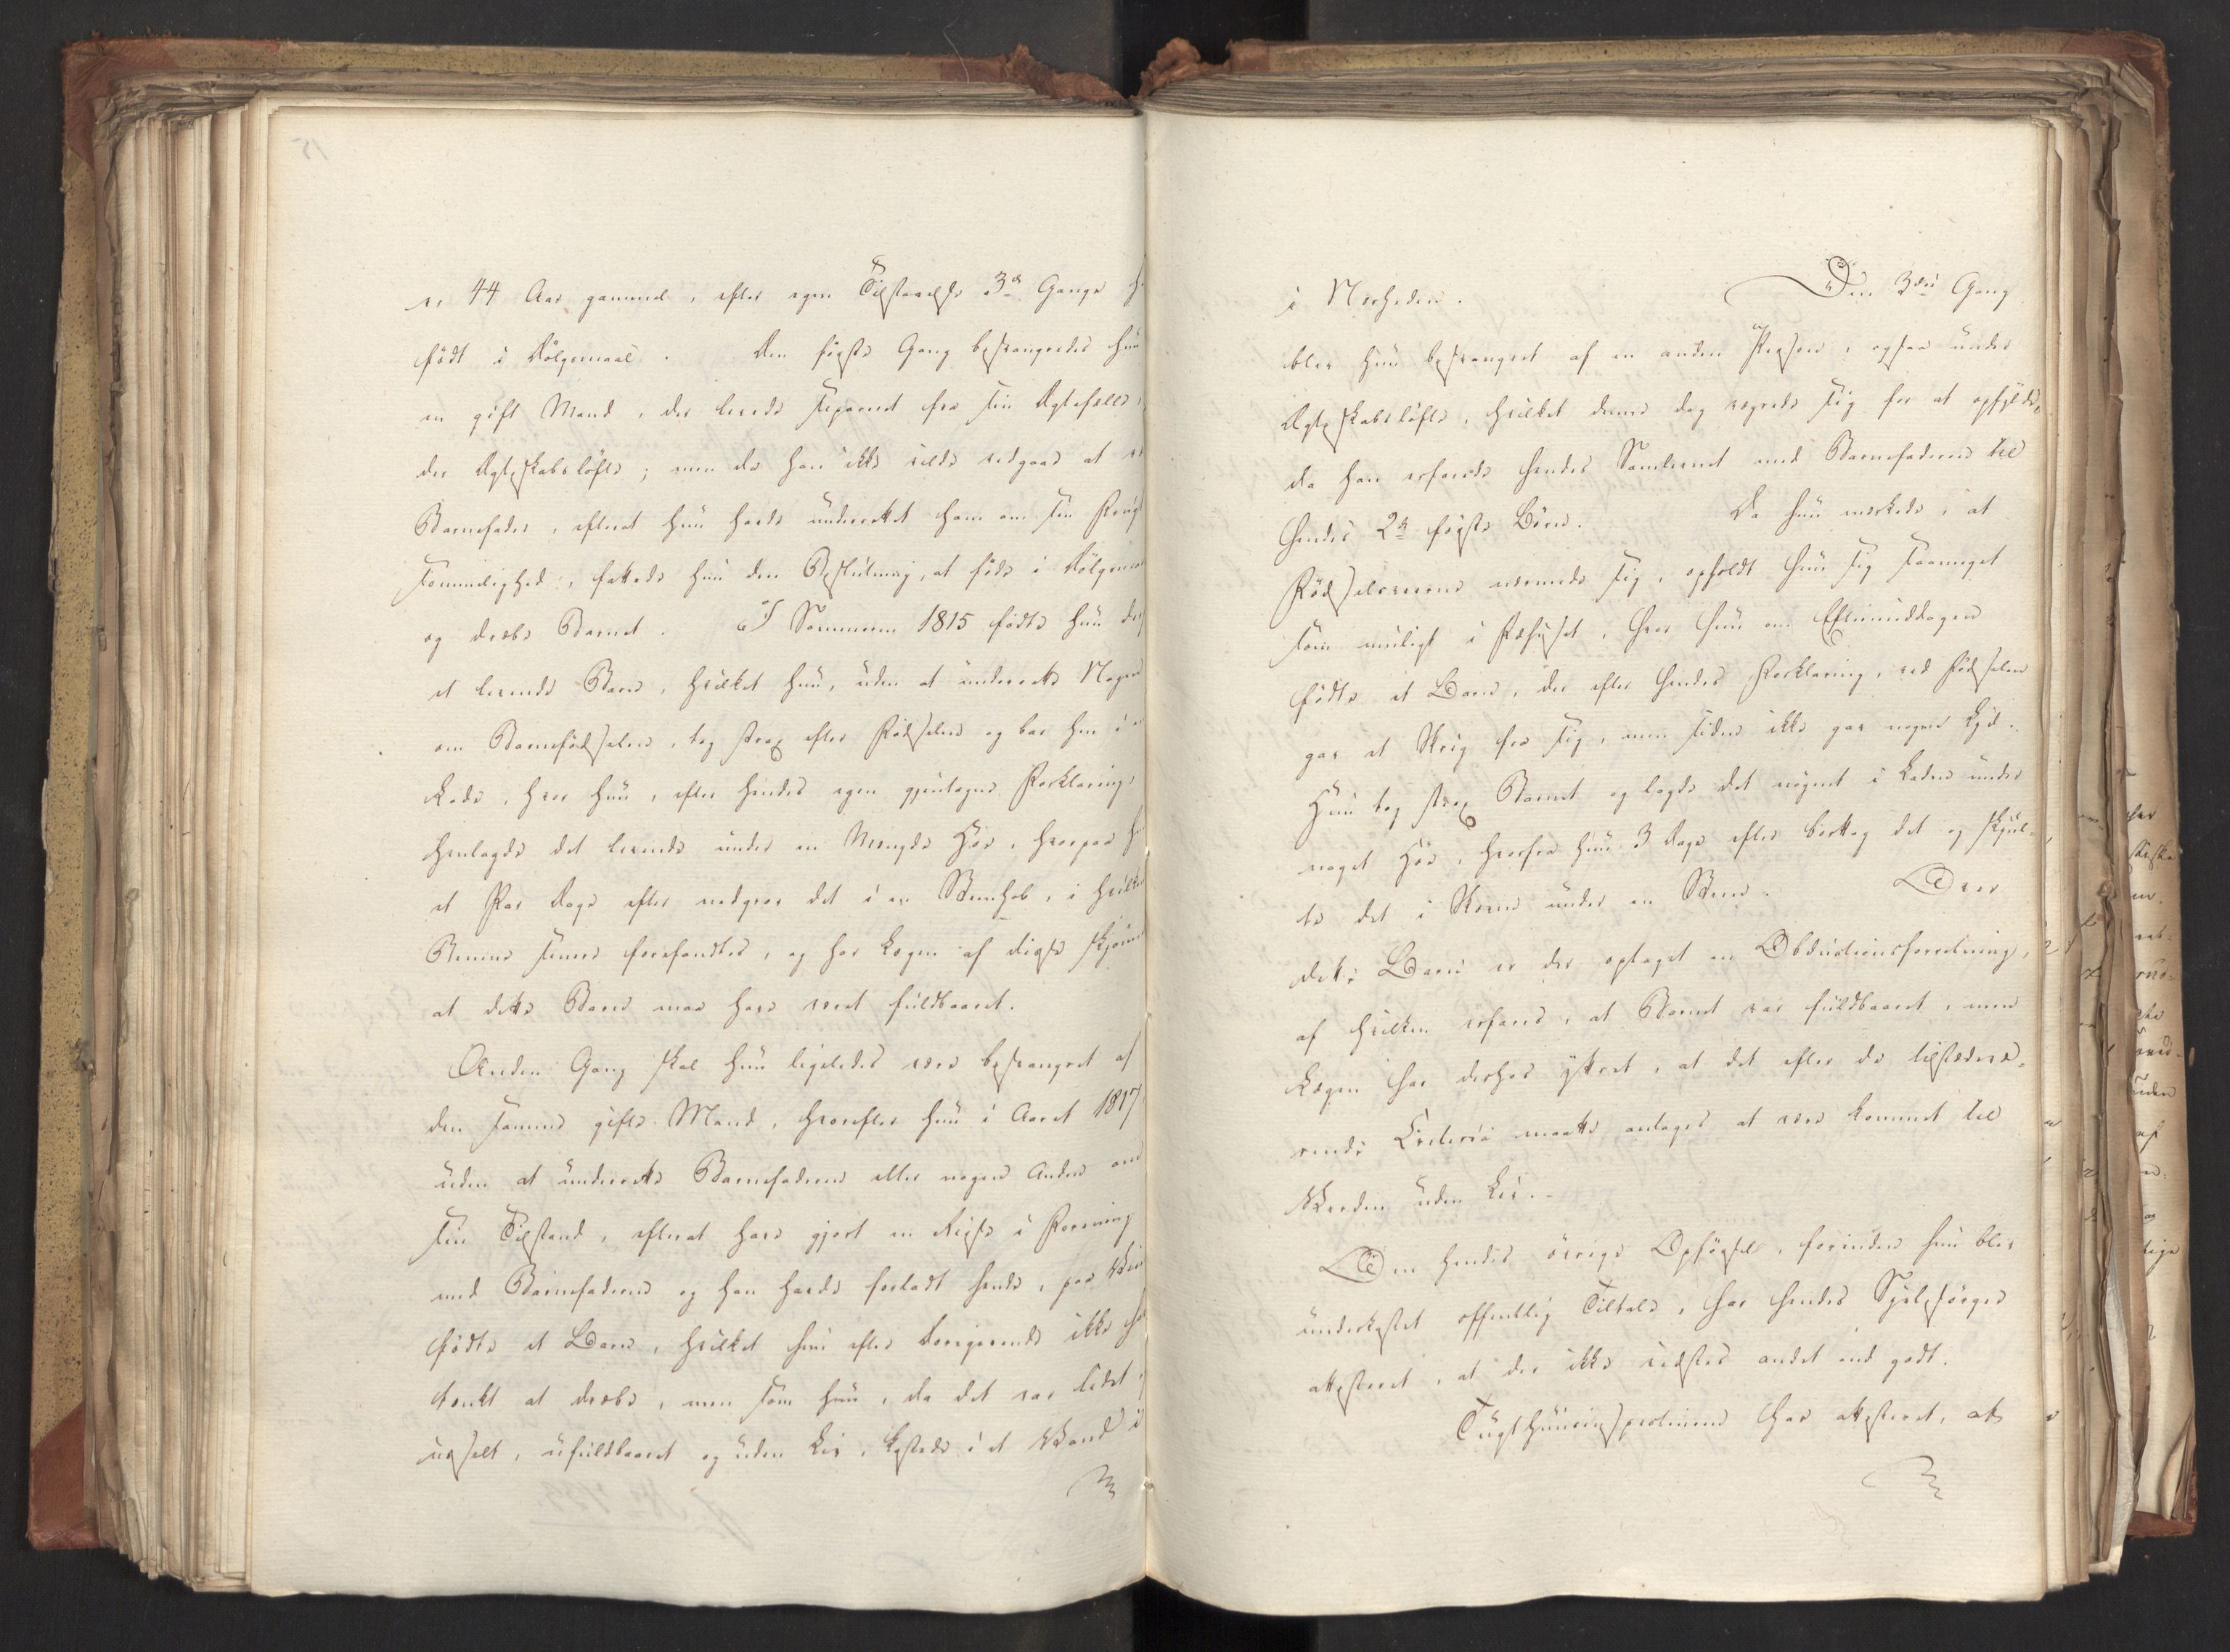 er 44 Aar gammel, efter egen Tilstaaelse 3de Gange h
födt i Dölgsmaal. Den förste Gang besvangredes hun
en gift Mand, der levede separeret fra sin Ægtefælle,
der Ægteskabslöfte; men da han ikke vilde vedgaae at v
Barnefader, efterat hun havde underrettet ham om sin Frugt
sommelighed, fattede hun den Beslutning, at föde i Dölgsmaa
og dræbe Barnet. I Sommeren 1815 födte hun der
et levende Barn, hvilket hun, uden at underrette Nogen
om Barnefödselen, tog strax efter Födselen og bar hen i en
Lade, hvor hun, efter hendes egen gjentagne Forklaring,
henlagde det levende under en Mængde Höe, hvorpaa h
et Par Dage efter nedgrov det i en Steenhob, i hvilken
Benene senere forefandtes, og har Lægen af disse skjönnet
at dette Barn maa have været fuldbaaret.
Anden Gang skal hun ligeledes være besvangret af
den samme gifte Mand, hvorefter hun i Aaret 1817
uden at underrette Barnefaderen eller nogen Anden om
sin Tilstand, efterat have gjort en Reise i Forening
med Barnefaderen og han havde forladt hende, paa Vei
födte et Barn, hvilket hun efter Foregivende ikke h
tænkt at dræbe, men som hun, da det var lidet,
usselt, ufuldbaaret og uden Liv, kastede i et Vand i
i Nærheden. Den 3die Gang
blev hun besvangret af en anden Person, ogsaa under
Ægteskabslöfte, hvilket denne dog vægrede sig for at opfylde,
da han erfarede hendes Samlevnet med Barnefaderen til
hendes 2de förste Börn. Da hun mærkede, at
Födselsveerne nærmede sig, opholdt hun sig saameget
som muligt i Fæhuset, hvor hun om Eftermiddagen
födte et Barn, der efter hendes Forklaring, ved Födselen
gav et Skrig fra sig, men siden ikke gav nogen Lyd.
Hun tog strax Barnet og lagde det nögent i Laden under
noget Höe, hvorfra hun 3 Dage efter borttog det og skjul-
te det i Skoven under en Steen. Over
dette Barn er der optaget en Obductionsforretning,
af hvilken erfares, at Barnet var fuldbaaret, men
Lægen har derhos yttret, at det efter de tilstedevæ-
rende Criteria maatte antages at være kommet til
Verden uden Liv.-
Om hendes övrige Opförsel, forinden hun blev
underkastet offentlig Tiltale, har hendes Sjelesörger
attesteret, at der ikke vidstes andet end godt.
Tugthuusinspecteuren har attesteret, at